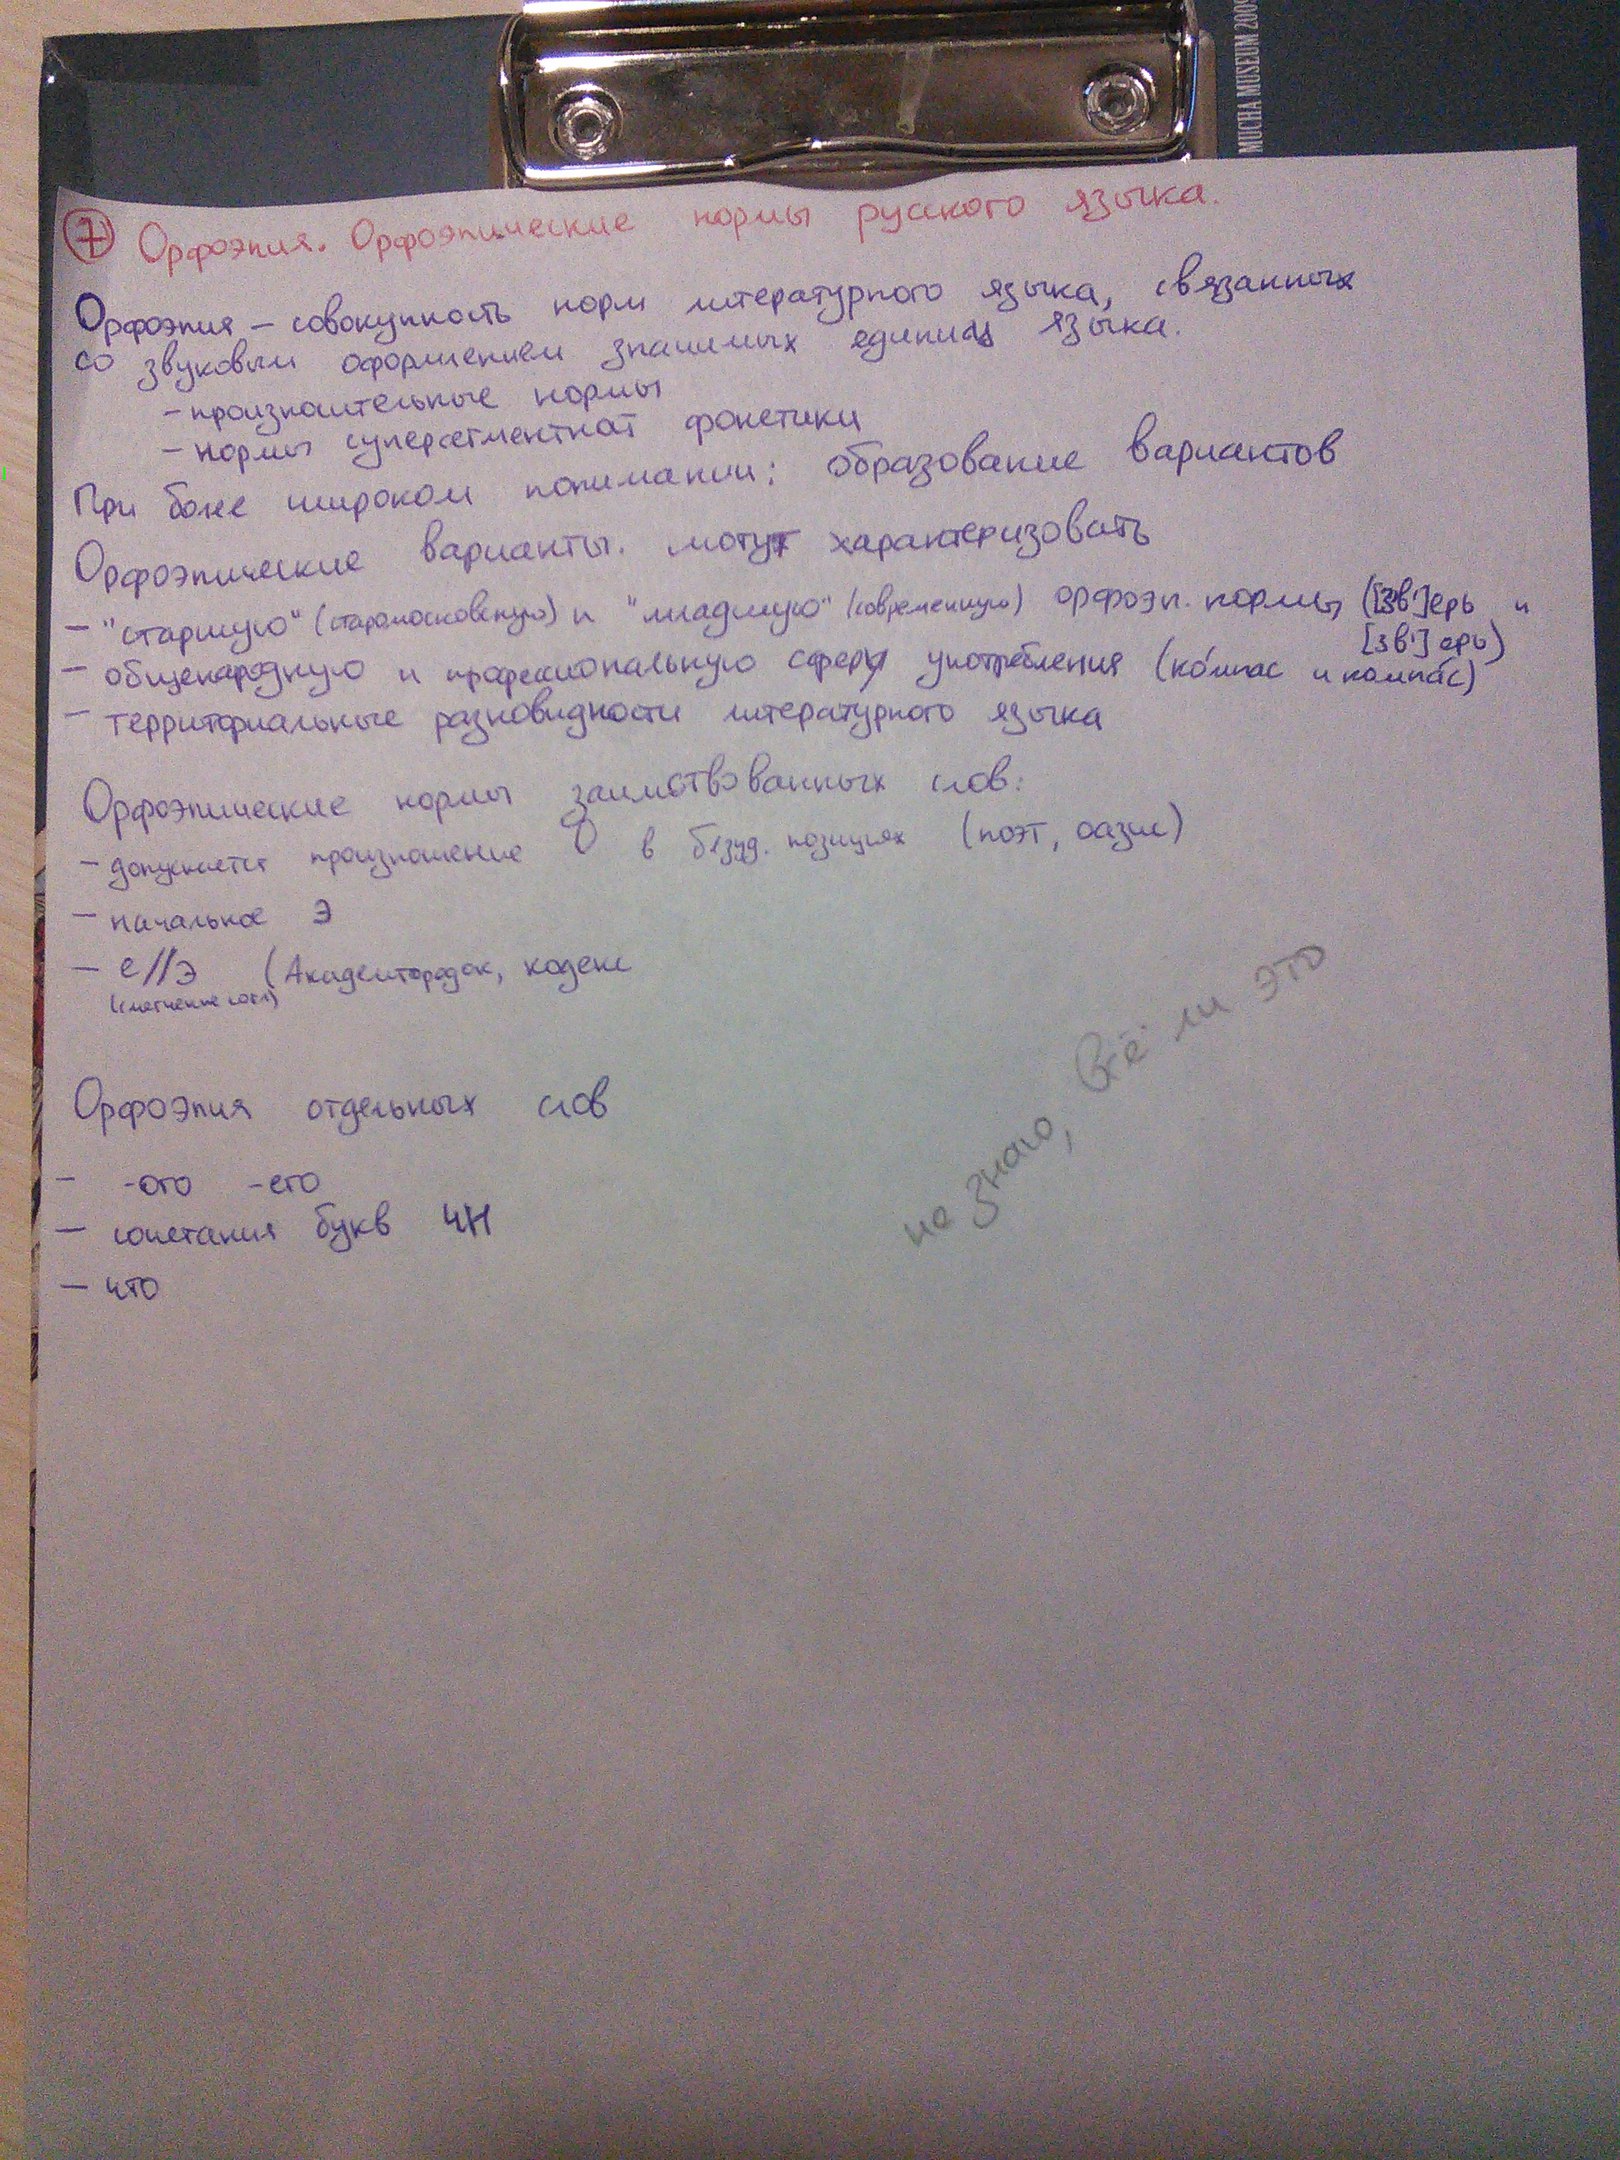 MUCHA MUSEUM 2009
7 Орфоэпия. Орфоэпические нормы русского языка.
Орфоэпия – совокупность норм литературного языка, связанных
со звуковым оформлением значимых единиц языка.
- произносительные нормы
- нормы суперсегментной фонетики
При более широком понимании: образование вариантов
Орфоэпические варианты. могут характеризовать
- "старшую" (старомосковскую) и "младшую" (современную) орфоэп. нормы ([з'в']ерь и
[зв']ерь)
- общенародную и профессиональную сферы употребления (ко́мпас и компа́с)
- территориальные разновидности литературного языка
Орфоэпические нормы заимствованных слов:
- допускается произношение О в безуд. позициях (поэт, оазис)
- начальное Э
- е//э (Академгородок, кодекс
(смягчение согл)
Орфоэпия отдельных слов
- -ого -его
- сочетания букв ЧН
- что
не знаю, всё ли это